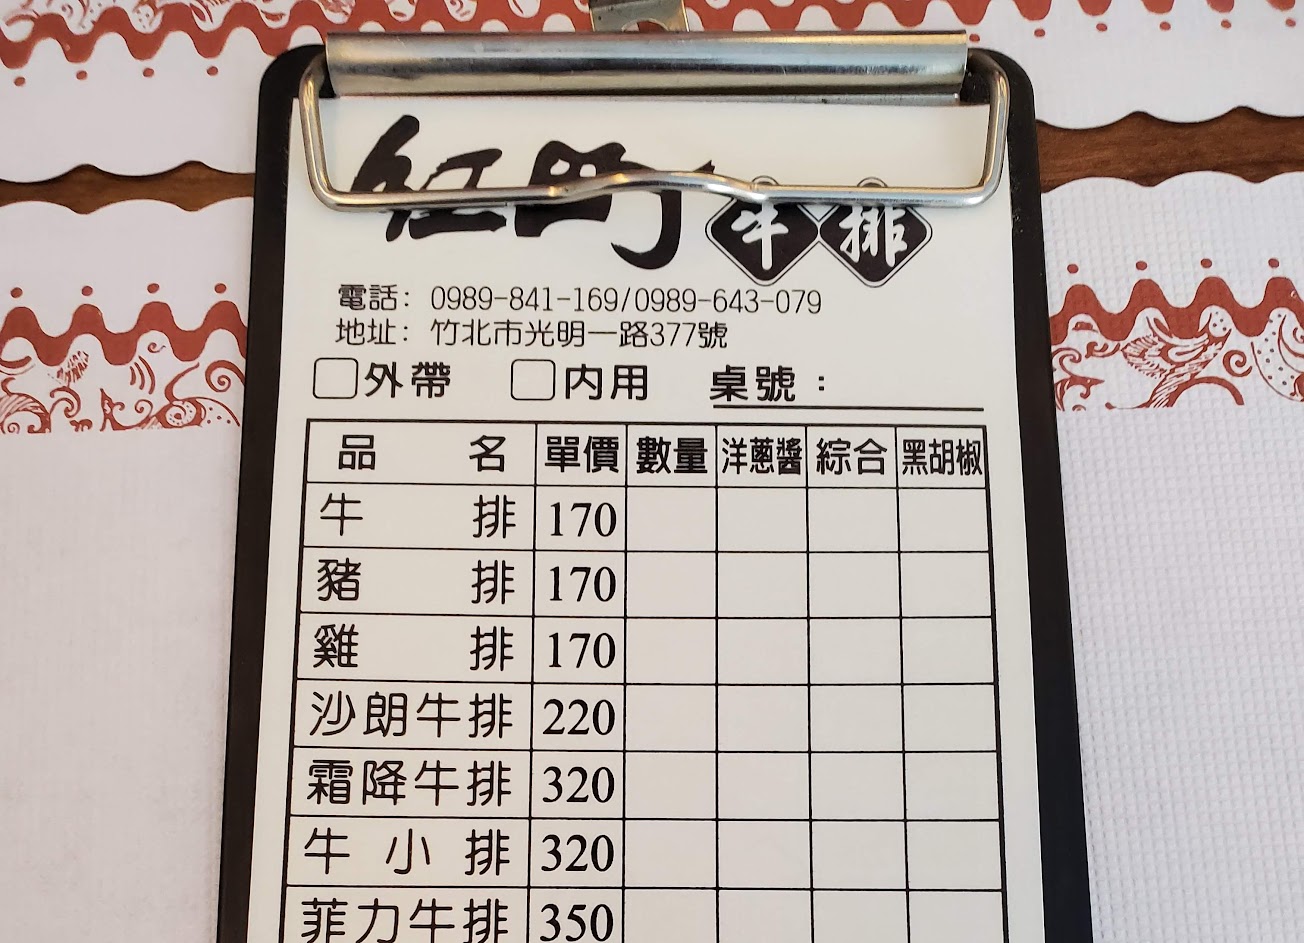 紅町牛排
電話：0989-841-169/0989-643-079
地址：竹北市光明一路377號
外帶 內用 桌號：
品名 單價 數量 洋蔥醬 綜合 黑胡椒
牛排 170
豬排 170
雞排 170
沙朗牛排 220
霜降牛排 320
牛小排 320
菲力牛排 350